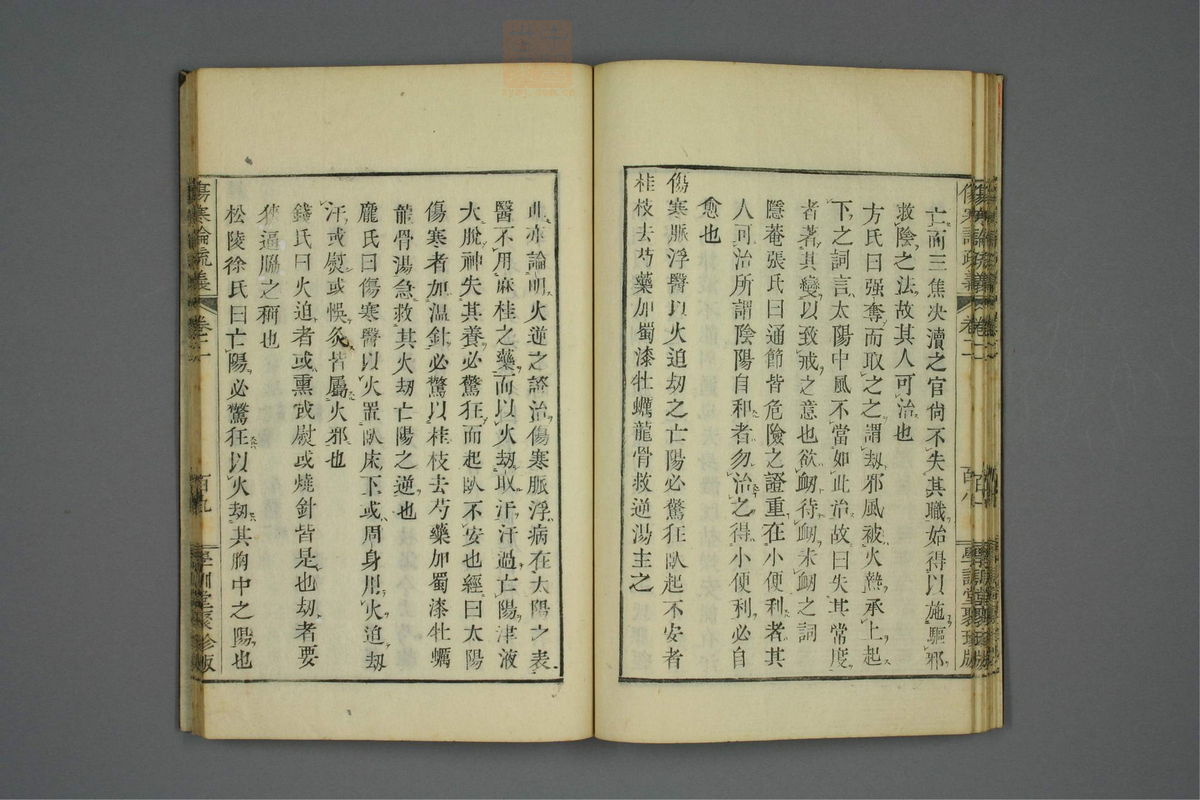 亡而三焦決瀆之官尙不失其職始得以施驅邪
救陰之法故其人可治也
方氏曰强奪而取之之謂劫邪風被火熱承上起
下之詞言太陽中風不當如此治故曰失其常度
者著其變以致戒之意也欲衂待衂未衂之詞
隱菴張氏曰通節皆危險之證重在小便利者其
人可治所謂陰陽自和者勿治之得小便利必自
愈也
傷寒脈浮醫以火迫劫之亡陽必驚狂臥起不安者
桂枝去芍藥加蜀漆牡蠣龍骨救逆湯主之
傷寒論疏義
卷二
百八
學訓堂聚珍版
此亦論明火逆之證治傷寒脈浮病在太陽之表
醫不用麻桂之藥而以火劫取汗汗過亡陽津液
大脫神失其養必驚狂而起臥不安也經曰太陽
傷寒者加温針必驚以桂枝去芍藥加蜀漆牡蠣
龍骨湯急救其火劫亡陽之逆也
龐氏曰傷寒醫以火置臥床下或周身用火迫劫
汗或熨或悞灸皆屬火邪也
錢氏曰火迫者或熏或熨或燒針皆是也劫者要
挾逼脇之稱也
松陵徐氏曰亡陽必驚狂以火劫其胸中之陽也
傷寒論疏義
卷二
百九
學訓堂聚珍版